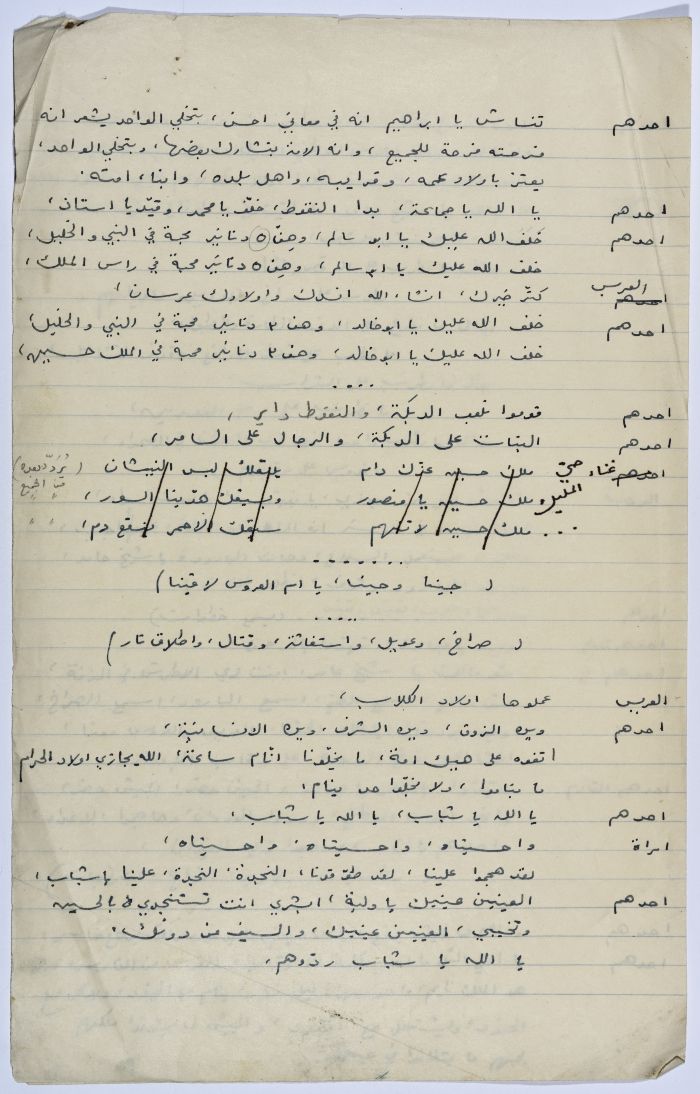 احدهم تنساش يا ابراهيم انه في معاني احسن، بتخلي الواحد يشعر انه
فرحته فرحة للجميع، وانه الامة بتشارك بعضها، وبتخلي الواحد،
يعتز باولاد عمه، وقرايبه، واهل بلده، وابناء امته.
احدهم يا الله يا جماعة، بدا النقوط، خلّف يا محمد، وقيّد يا استاذ،
احدهم خلف الله عليك يا ابو سالم، وهنّ ٥ دنانير محبة في النبي والخليل،
خلف الله عليك يا ابو سالم، وهن ٥ دنانير محبة في راس الملك،
العريس كثّر خيرك، انشاء الله افندك واولادك عرسان،
احدهم خلف الله عليك يا ابو خالد، وهن ٢ دنانير محبة في النبي والخليل،
خلف الله عليك يا ابو خالد، وهن ٢ دنانير محبة في الملك حسين،
....
احدهم قوموا نلعب الدبكة، والنقوط داير،
احدهم البنات على الدبكة، والرجال على السامر،
احدهم غناء حيّ الخليل ملك حسين عزك دام يلبقلك لبس النيشان (تُردّد بعده
ملك حسين يا منصور وبسيفك هدّينا السور، من الجميع)
... ملك حسين لا تهتم سيفك الاحمر ينقع دم، " "
.......
( جينا وجينا، يا ام العروس لاقينا)
.....
( صراخ، وعويل، واستغاثة، وقتال، واطلاق نار)
العريس عملوها اولاد الكلاب،
احدهم وين الذوق، وين الشرف، وين الانسانية،
اتفوه على هيك امة، ما يخلّونا اننام ساعة، الله يجازي اولاد الحرام
ما بناموا، ولا بخلّوا حد ينام.
احدهم يا الله يا شباب، يا الله يا شباب.
امراة واحسيناه، واحسيناه، واحسيناه،
لقد هجموا علينا، لقد طوّقونا، النجدة، النجدة، علينا يا شباب،
احدهم العينين عينيك يا ولية، ابشري انت تستنجدي بالحسين
وتخيبي، العينين عينيك، والسيف من دونك.
يا الله يا شباب ردّوهم،